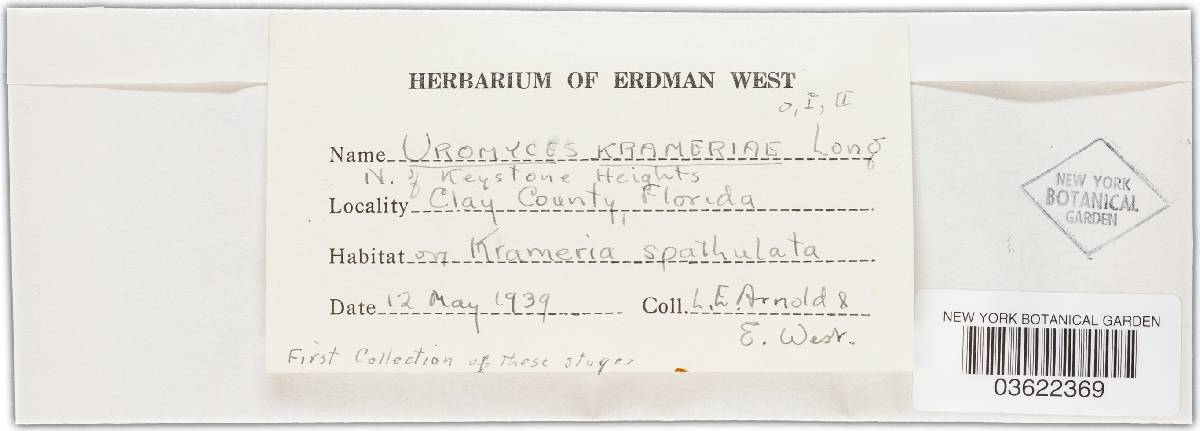 HERBARIUM OF ERDMAN WEST
O, I, II
Name UROMYCES KRAMERIAE Long
N. of Keystone Heights
Locality Clay County, Florida
Habitat on Krameria spathulata
Date 12 May 1939 Coll. L.E. Arnold &
E. West.
First Collection of these stages
NEW YORK
BOTANICAL
GARDEN
NEW YORK BOTANICAL GARDEN
03622369